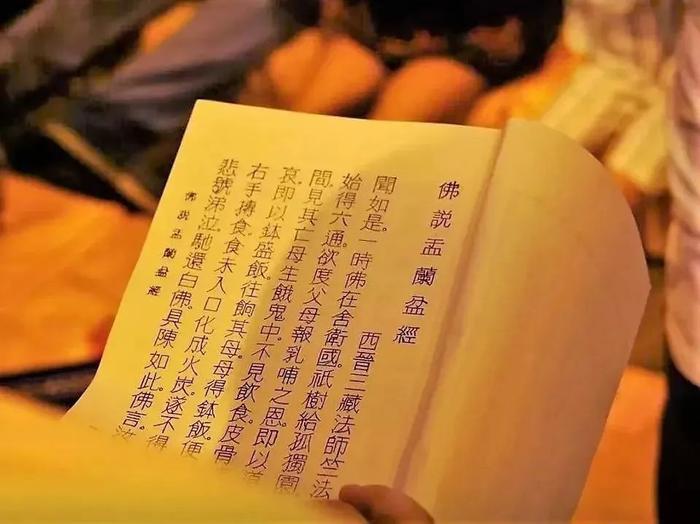 佛説盂蘭盆經
西晉三藏法師竺法
聞如是。一時佛在舍衛國。祇樹給孤獨園
始得六通。欲度父母報乳哺之恩。即以道
間見其亡母生餓鬼中不見飲食。皮骨
哀。即以鉢盛飯。往餉其母。母得鉢飯。便
右手搏食食未入口化成火炭。遂不得
悲號涕泣。馳還白佛。具陳如此。佛言。汝
佛說盂蘭盆經